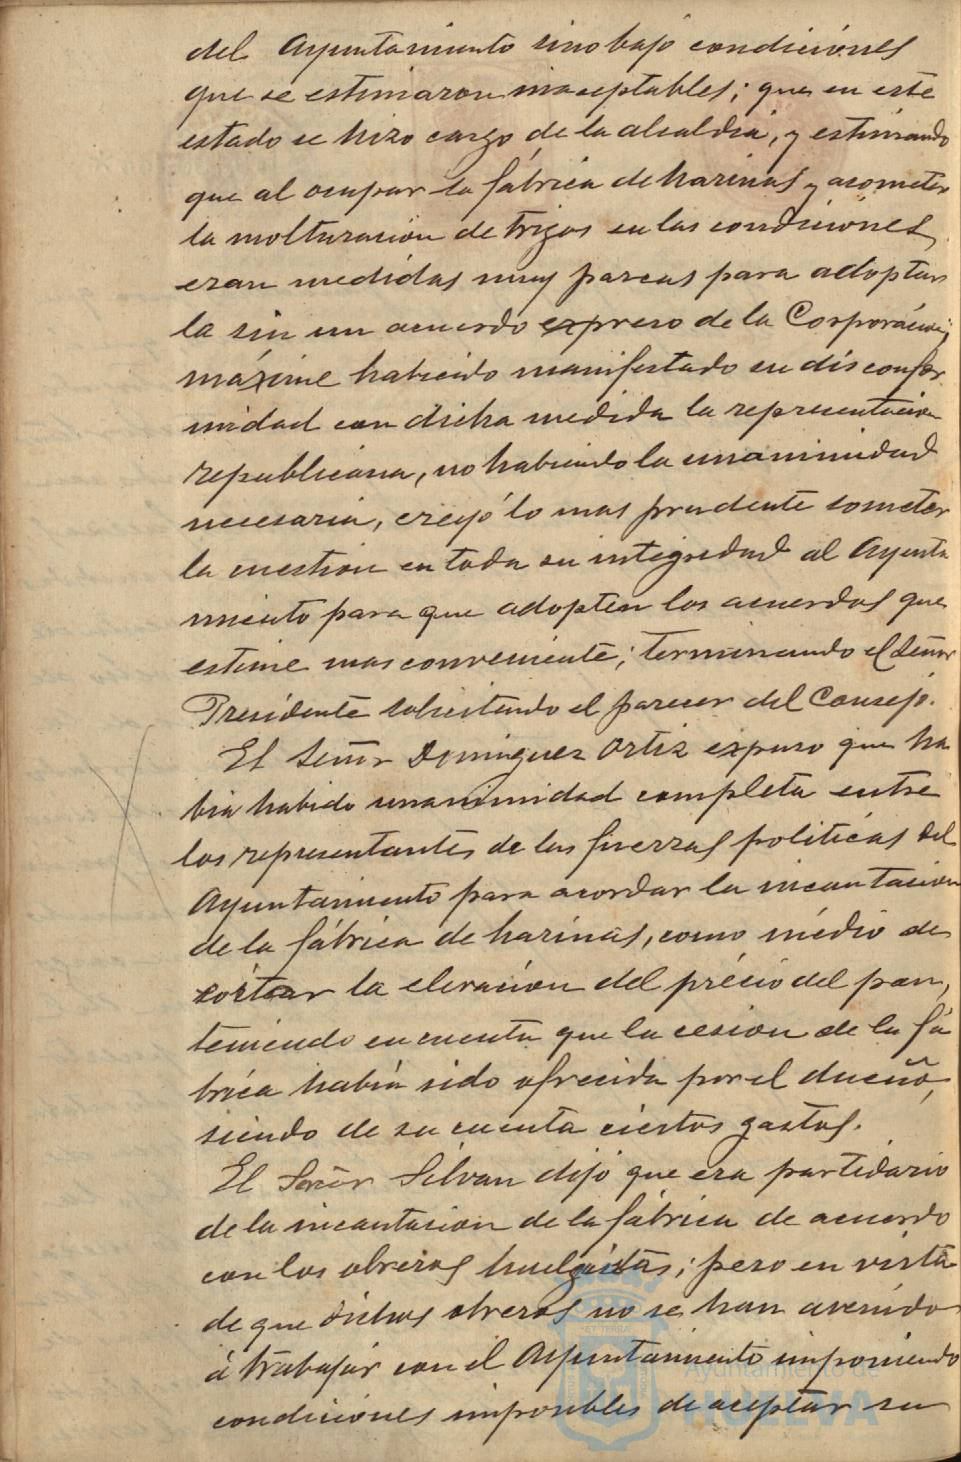 del Ayuntamiento sino bajo condiciones
que se estimaron inaceptables; que en este
estado se hizo cargo de la alcaldia, y estimando
que al ocupar la fábrica de harinas y acometer
la molturación de trigos en las condiciones
eran medidas muy parcas para adoptar
la sin un acuerdo expreso de la Corporación,
máxime habiendo manifestado su disconfor
midad con dicha medida la representación
republicana, no habiendo la unanimidad
necesaria, creyó lo mas prudente someter
la cuestion en toda su integridad al Ayunta
miento para que adopten los acuerdos que
estime mas conveniente; terminando el Señor
Presidente solicitando el parecer del Consejo.
El Señor Dominguez Ortiz expuso que ha
bia habido unanimidad completa entre
los representantes de las fuerzas politicas del
Ayuntamiento para acordar la incautacion
de la fábrica de harinas, como médio de
cortar la elevación del précio del pan,
teniendo en cuenta que la cesion de la fá
brica había sido ofrecida por el dueño,
siendo de su cuenta ciertos gastos.
El Señor Silvan dijo que era partidario
de la incautasion de la fábrica de acuerdo
con los obreros huelgistas; pero en vista
de que dichos obreros no se han avenido
á trabajar con el Ayuntamiento imponiendo
condiciones imposibles de aceptar su
Ayuntamiento de
HUELVA